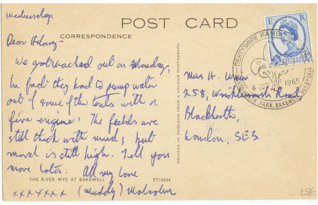 Wednesday
POST CARD
CORRESPONDENCE
we got washed out on Monday,
In fact they had to pump water
out of some of the tents with a
fire engine! The fields are
still thick with mud, but
moral is still high. Tell you
more later. All my love
xxxxxxx (muddy) Malcolm
THE RIVER WYE AT BAKEWELL
PT10434
Mrs H.
258,
Road
Blackheath,
London, SE3
E R
1965
PARK, BAKEWELL
258